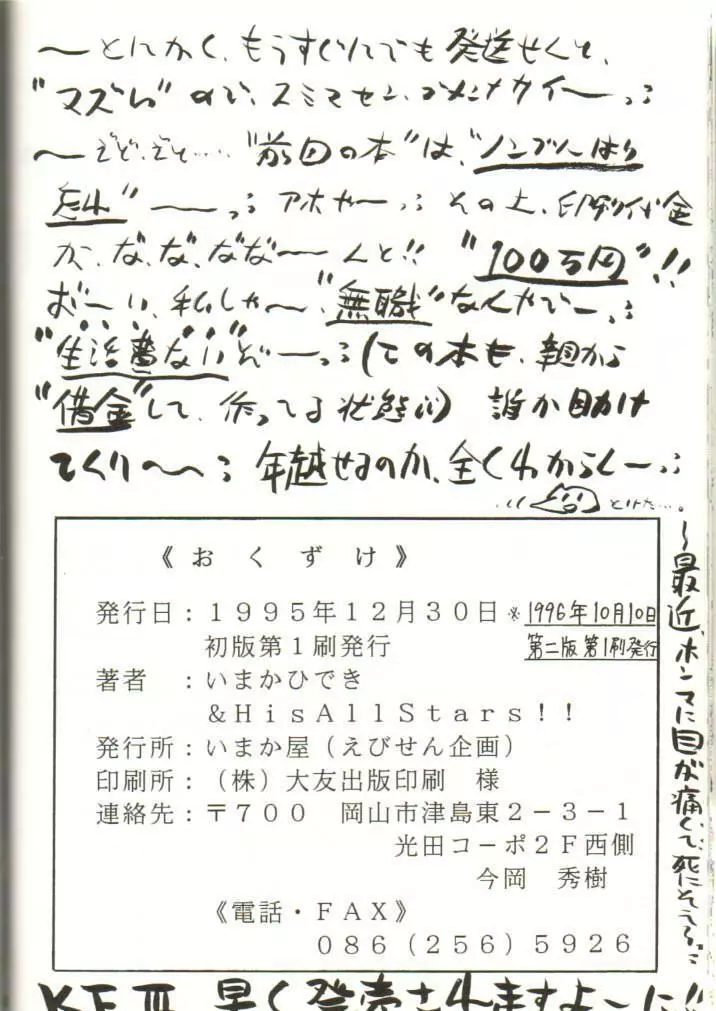 〜とにかく、もうすぐにでも発送せんと、
"マズい"ので、スミマセン、ゴメンナサイ〜っ;
〜ぞ、ぞぞ…"前回の本"は、"ノンブルはり
忘れ"――っ; アホや―っ; その上、印刷代金
が、な、な、なな――んと!! "100万円"!!
お〜い、私しゃ〜、"無職"なんやで―っ;
"生活費ない"ぞ―っ;(この本も、親から
"借金"して、作ってる状態;;) 誰か助け
てくり〜〜; 年越せるのか、全くわからん―っ;
とけた…。
〜最近、ホンマに目が痛くて、死にそうっ;
《おくずけ》
発行日:1995年12月30日 ※1996年10月10日
初版第1刷発行 第二版第1刷発行
著者 :いまかひでき
&HisAllStars!!
発行所:いまか屋(えびせん企画)
印刷所:(株)大友出版印刷 様
連絡先:〒700 岡山市津島東2-3-1
光田コーポ2F西側
今岡 秀樹
《電話・FAX》
086(256)5926
KF III 早く発売されますよーに!!